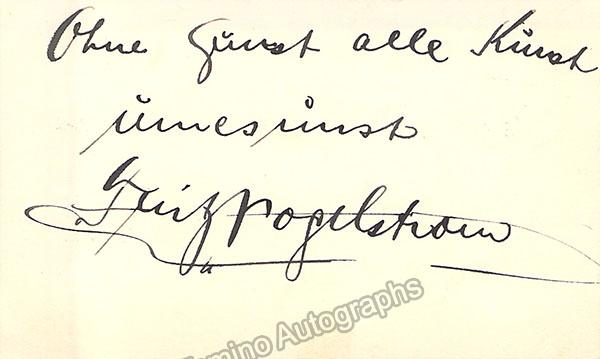 Ohne Gunst alle Kunst
umesunst
Fritz Vogelstrom
Tamino Autographs